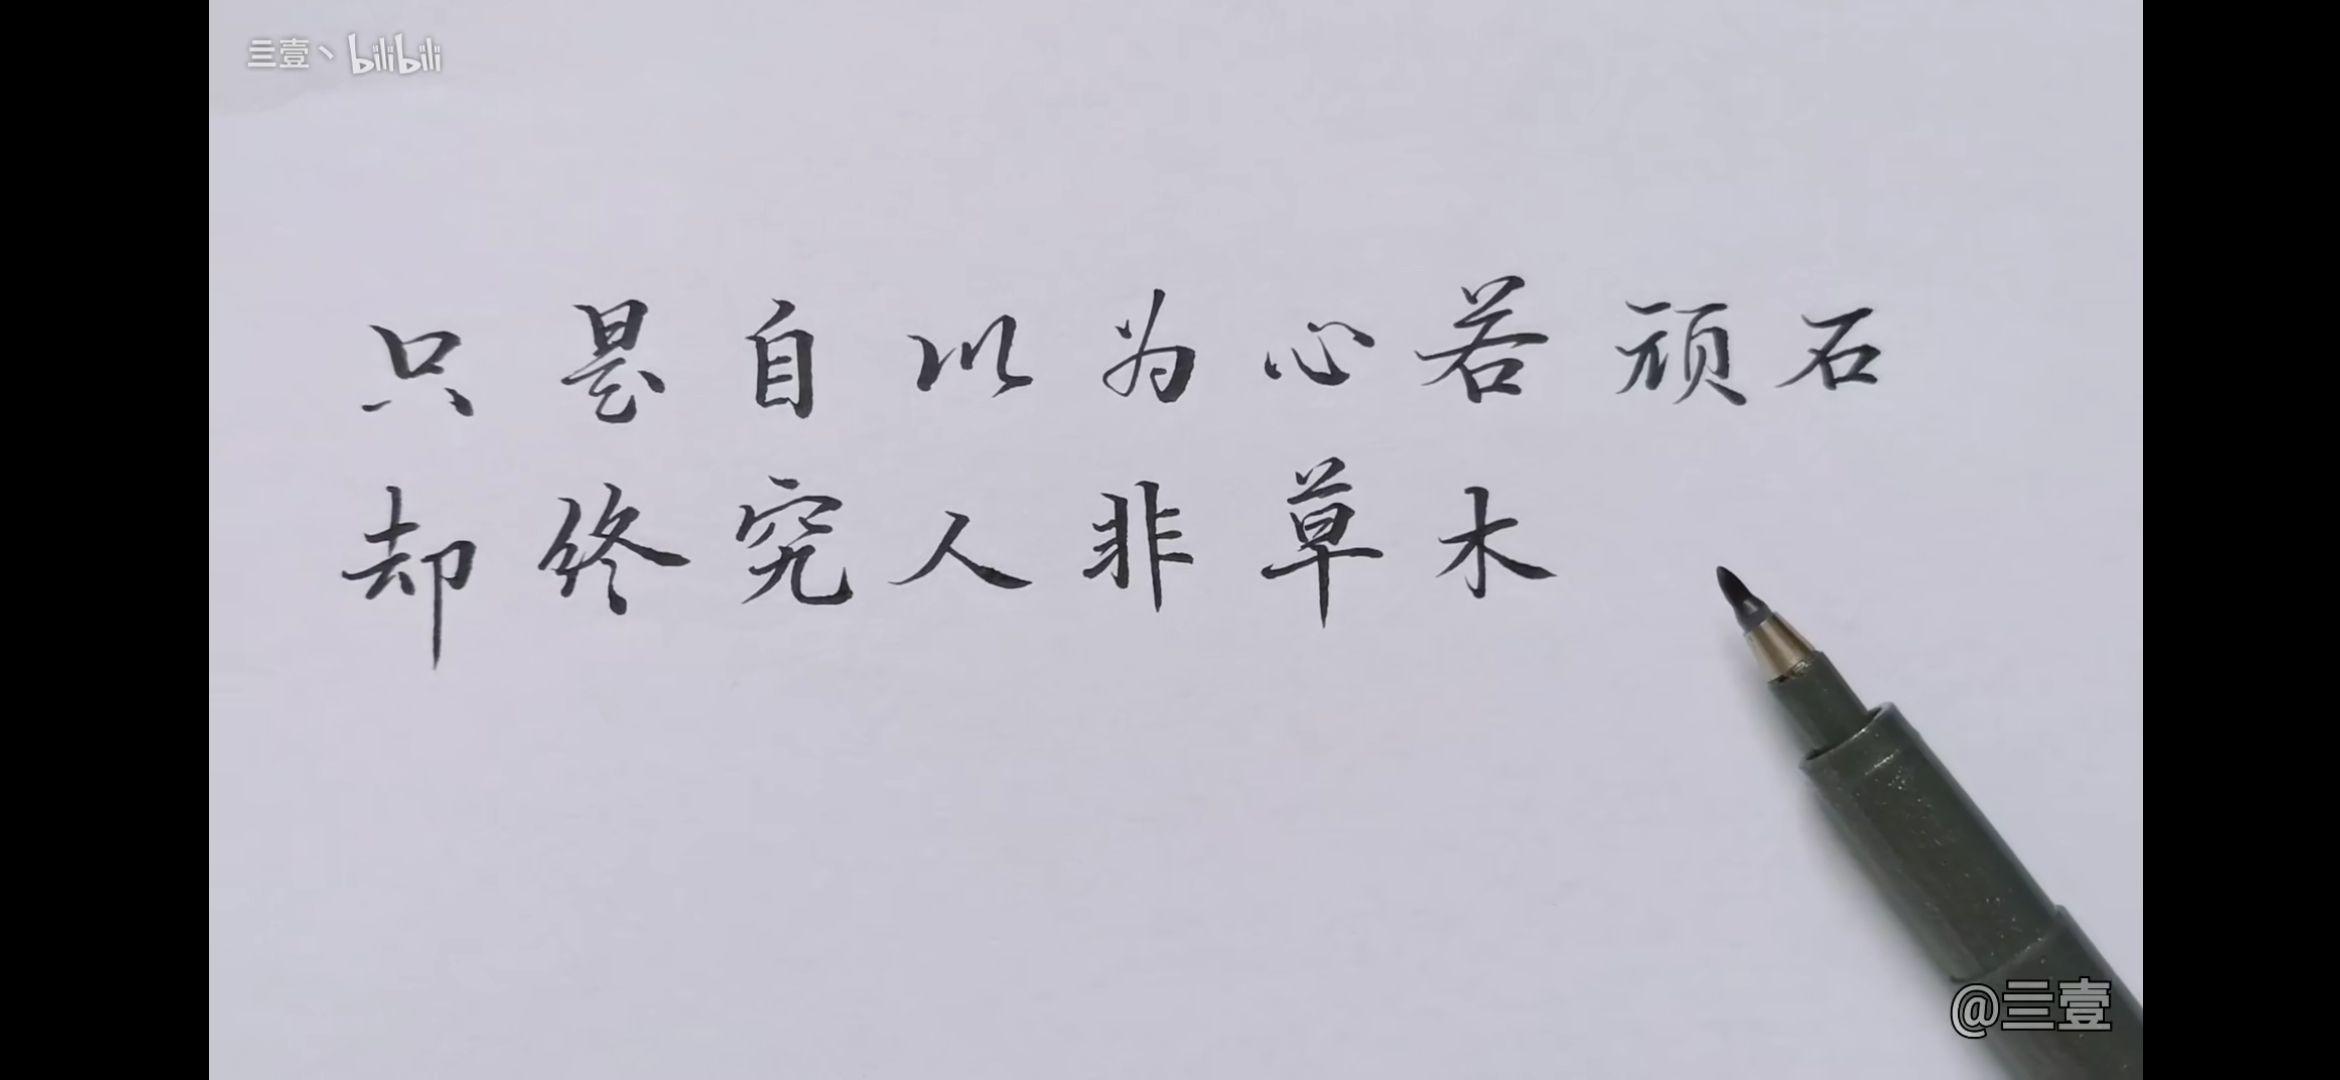 亖壹丶bilibili
只是自以为心若顽石
却终究人非草木
@亖壹